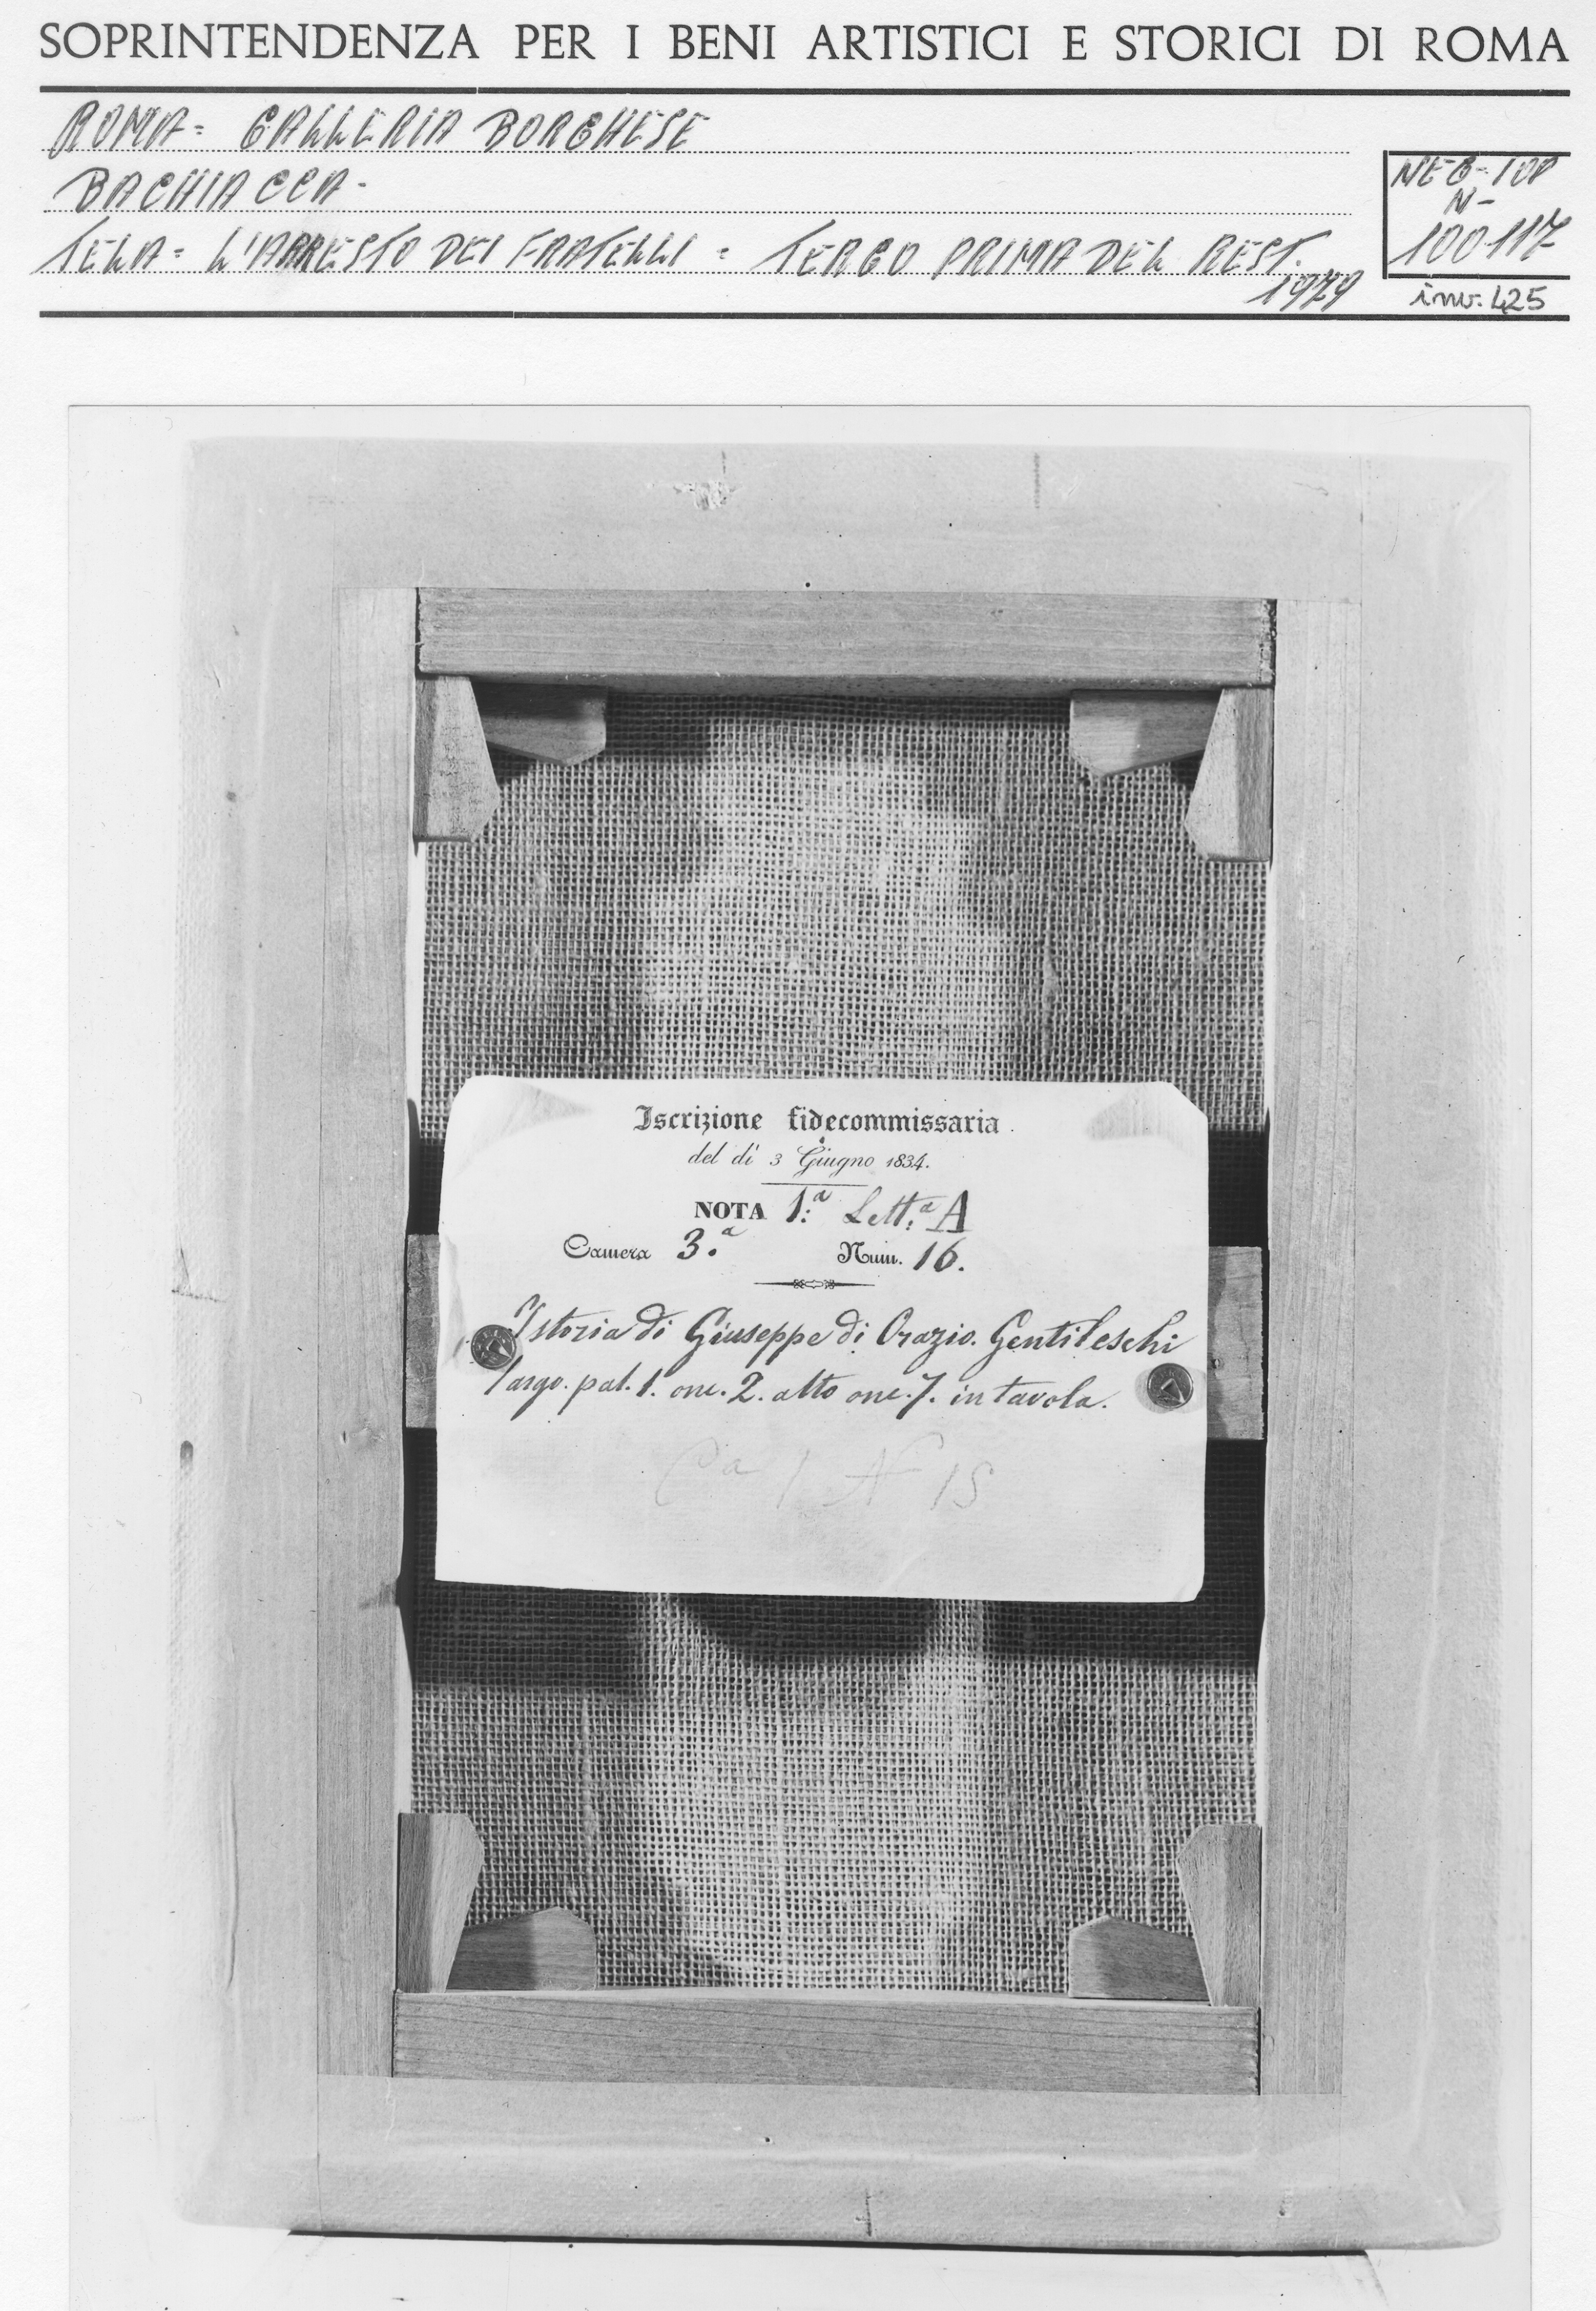 SOPRINTENDENZA PER I BENI ARTISTICI E STORICI DI ROMA
ROMA = GALLERIA BORGHESE
BACHIACCA -
TELA = L'ARRESTO DEI FRATELLI = TERGO PRIMA DEL REST.
1979
NEG-
N-
100117
inv. 425
Iscrizione fidecommissaria
del di 3 Giugno 1834.
NOTA 1:ª Lett:ª A
Camera 3.ª Num. 16.
Istoria di Giuseppe di Orazio. Gentileschi
largo. pal. 1. onc. 2. alto onc. 7. in tavola.
Cª 1 N 15